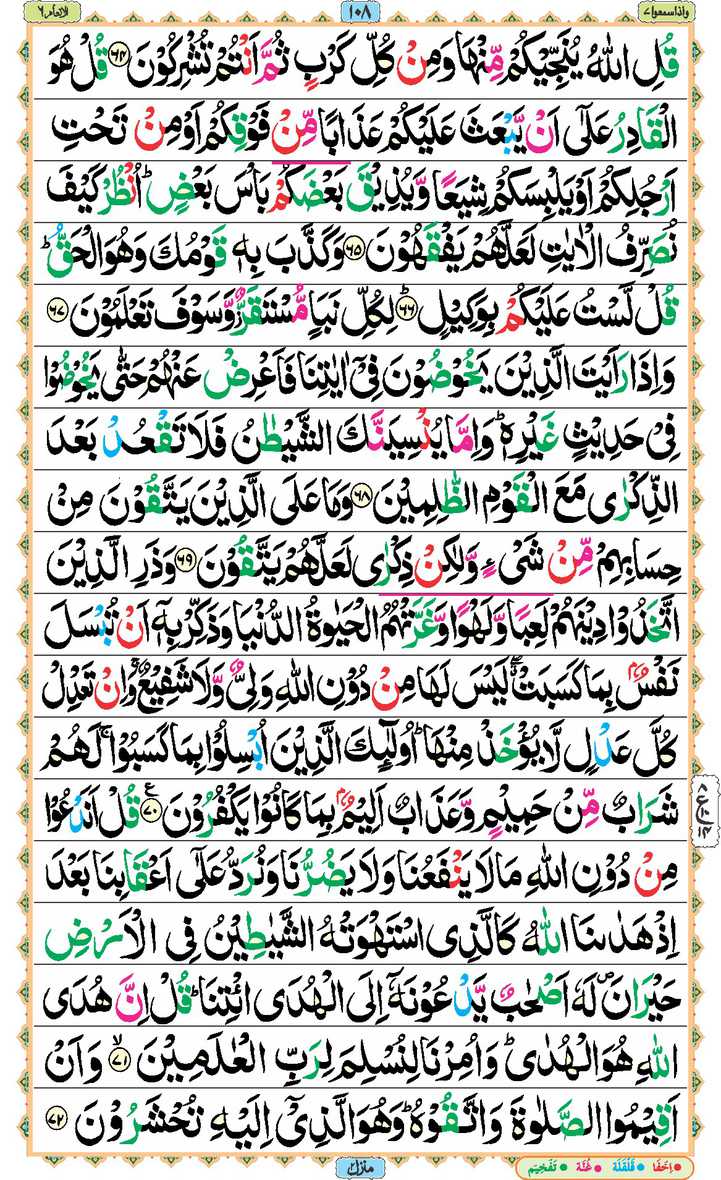 واذاسمعوا ٧
١٠٨
الانعام ٦
قُلِ اللّٰهُ يُنَجِّيْكُمْ مِّنْهَا وَمِنْ كُلِّ كَرْبٍ ثُمَّ اَنْتُمْ تُشْرِكُوْنَ ﴿٦٤﴾ قُلْ هُوَ
الْقَادِرُ عَلٰٓى اَنْ يَّبْعَثَ عَلَيْكُمْ عَذَابًا مِّنْ فَوْقِكُمْ اَوْ مِنْ تَحْتِ
اَرْجُلِكُمْ اَوْ يَلْبِسَكُمْ شِيَعًا وَّيُذِيْقَ بَعْضَكُمْ بَاْسَ بَعْضٍ ؕ اُنْظُرْ كَيْفَ
نُصَرِّفُ الْاٰيٰتِ لَعَلَّهُمْ يَفْقَهُوْنَ ﴿٦٥﴾ وَكَذَّبَ بِهٖ قَوْمُكَ وَهُوَ الْحَقُّ ؕ
قُلْ لَّسْتُ عَلَيْكُمْ بِوَكِيْلٍ ؕ ﴿٦٦﴾ لِكُلِّ نَبَاٍ مُّسْتَقَرٌّ وَّسَوْفَ تَعْلَمُوْنَ ﴿٦٧﴾
وَاِذَا رَاَيْتَ الَّذِيْنَ يَخُوْضُوْنَ فِىْۤ اٰيٰتِنَا فَاَعْرِضْ عَنْهُمْ حَتّٰى يَخُوْضُوْا
فِىْ حَدِيْثٍ غَيْرِهٖ ؕ وَاِمَّا يُنْسِيَنَّكَ الشَّيْطٰنُ فَلَا تَقْعُدْ بَعْدَ
الذِّكْرٰى مَعَ الْقَوْمِ الظّٰلِمِيْنَ ﴿٦٨﴾ وَمَا عَلَى الَّذِيْنَ يَتَّقُوْنَ مِنْ
حِسَابِهِمْ مِّنْ شَىْءٍ وَّلٰكِنْ ذِكْرٰى لَعَلَّهُمْ يَتَّقُوْنَ ﴿٦٩﴾ وَذَرِ الَّذِيْنَ
اتَّخَذُوْا دِيْنَهُمْ لَعِبًا وَّلَهْوًا وَّغَرَّتْهُمُ الْحَيٰوةُ الدُّنْيَا وَذَكِّرْ بِهٖۤ اَنْ تُبْسَلَ
نَفْسٌۢ بِمَا كَسَبَتْ ۖ لَيْسَ لَهَا مِنْ دُوْنِ اللّٰهِ وَلِىٌّ وَّلَا شَفِيْعٌ ۚ وَاِنْ تَعْدِلْ
كُلَّ عَدْلٍ لَّا يُؤْخَذْ مِنْهَا ؕ اُولٰٓئِكَ الَّذِيْنَ اُبْسِلُوْا بِمَا كَسَبُوْا ۚ لَهُمْ
شَرَابٌ مِّنْ حَمِيْمٍ وَّعَذَابٌ اَلِيْمٌۢ بِمَا كَانُوْا يَكْفُرُوْنَ ﴿٧٠﴾ قُلْ اَنَدْعُوْا
مِنْ دُوْنِ اللّٰهِ مَا لَا يَنْفَعُنَا وَلَا يَضُرُّنَا وَنُرَدُّ عَلٰٓى اَعْقَابِنَا بَعْدَ
اِذْ هَدٰىنَا اللّٰهُ كَالَّذِى اسْتَهْوَتْهُ الشَّيٰطِيْنُ فِى الْاَرْضِ
حَيْرَانَ لَهٗۤ اَصْحٰبٌ يَّدْعُوْنَهٗۤ اِلَى الْهُدَى ائْتِنَا ؕ قُلْ اِنَّ هُدَى
اللّٰهِ هُوَ الْهُدٰى ؕ وَاُمِرْنَا لِنُسْلِمَ لِرَبِّ الْعٰلَمِيْنَ ۙ ﴿٧١﴾ وَاَنْ
اَقِيْمُوا الصَّلٰوةَ وَاتَّقُوْهُ ؕ وَهُوَ الَّذِىْۤ اِلَيْهِ تُحْشَرُوْنَ ﴿٧٢﴾
منزل ٢
اِخفَا قَلْقَلَة غُنَّة تَفْخِيْم